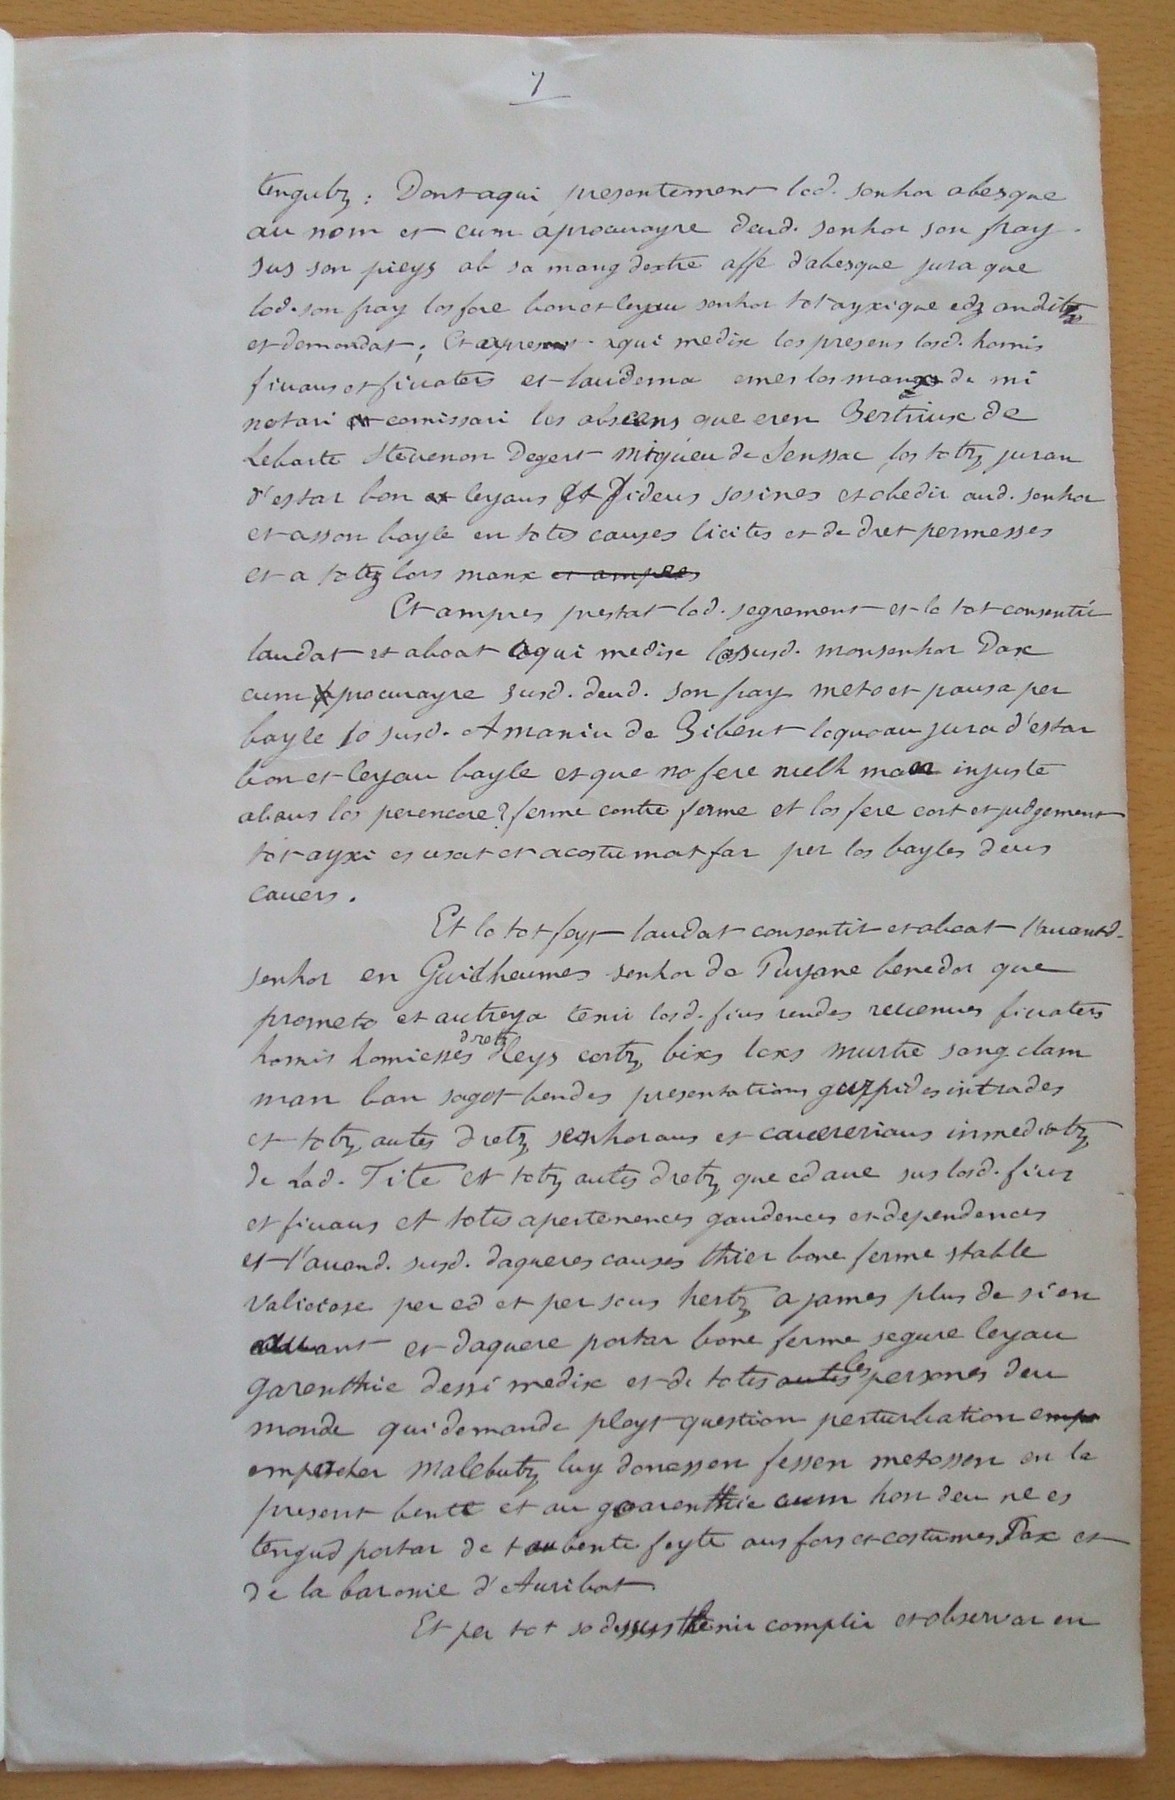 7
tengutz : Dont aqui presentement lod. senhor abesque
au nom et cum aprocurayre deud. senhor son fray.
sus son pieys ab sa mang dextre affe d'abesque jura que
lod. son fray los fore bon et leyau senhor tot ayxi que edz an dit
et demandat ; Et aqui medix los presens losd. homis
fiuaus et fiuaters et laudema emer los mans de mi
notari et comissari los absens que eren Bertrius de
Lebarte Steuenon Degert Miqueu de Senssac los totz juran
d'estar bon et leyaus et fideus sosines et obedir aud. senhor
et a sson bayle en totes causes licites et de dret permesses
et a totz lors manx et ampres
Et ampres prestat lod. segrement et lo tot consentit
laudat et aboat aqui medix lo susd. monsenhor Dax
cum procurayre susd. deud. son fray meto et pausa per
bayle lo susd. Amaniu de Bibent loquoau jura d'estar
bon et leyau bayle et que no fere nulh man injuste
abans los perencore ? ferme contre ferme et los fere cort et judgement
tot ayxi es usat et acostumat far per los bayles deus
cauers.
Et lo tot feyt laudat consentit et aboat l'auantd.
senhor en Guilheumes senhor de Puyane benedor que
prometo et autreya tenir losd. fius rendes revenues fiuaters
homis homiesses dretz leys cortz bixs lexs murtre sang clam
man ban saget bendes presentations gurpides intrades
et totz autes dretz senhoraus et cauereriaus inmediatz
de lad. Tite et totz autes dretz que ed aue sus losd. fius
et fiuaus et totes apertenences gaudences et dependences
et l'auand. susd. daqueres causes thier bone ferme stable
Valiciose per ed et per sous hertz a james plus de si en
auant et daquere portar bone ferme segure leyau
garenthie dessi medix et de totes autes les persones deu
monde qui demande pleyt question perturbation emp
empacher malebutz luy donessen fessen metossen en le
present bente et au garenthie cum hon deu ne es
tengud portar de tau bente feyte aus fors et costumes Dax et
de la baronie d'Auribat
Et per tot so dessus thenir complir et observar en